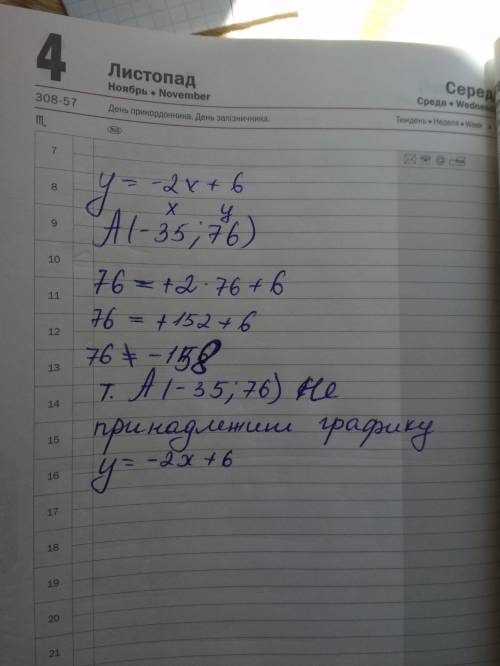 4 Листопад
Ноябрь • November
Серед
Среда • Wednes
308-57
День прикордонника. День залізничника.
Тиждень • Неделя • Week
7
8
9
10
11
12
13
14
15
16
17
18
19
20
21
y = -2x + 6
x y
A(-35; 76)
76 = +2 · 76 + 6
76 = +152 + 6
76 ≠ -158
т. A(-35; 76) не
принадлежит графику
y = -2x + 6